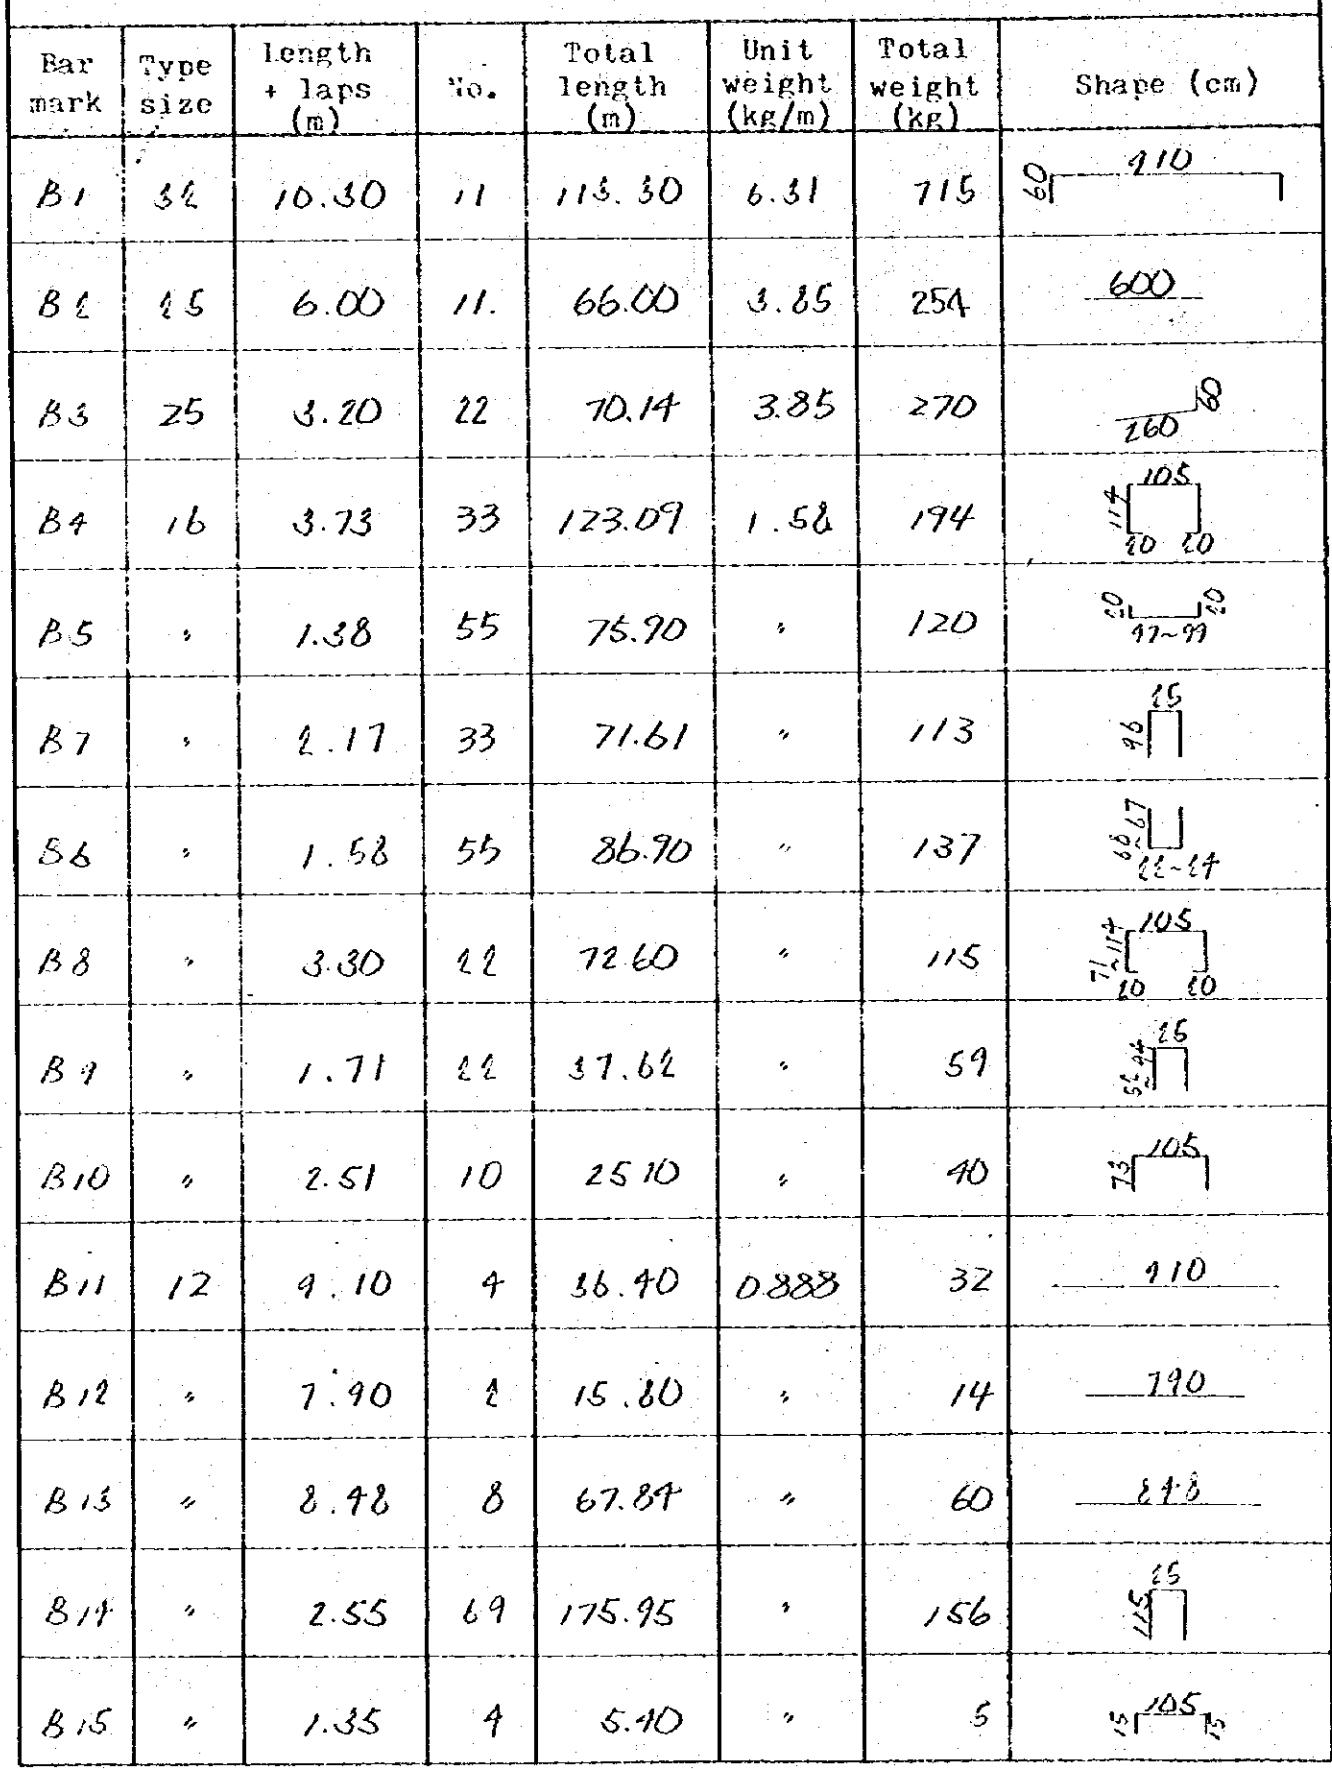 Bar mark | Type size | Length + laps (m) | No. | Total length (m) | Unit weight (kg/m) | Total weight (kg) | Shape (cm)
B1 | 32 | 10.30 | 11 | 113.30 | 6.31 | 715 | 60 910
B2 | 25 | 6.00 | 11. | 66.00 | 3.85 | 254 | 600
B3 | 25 | 3.20 | 22 | 70.14 | 3.85 | 270 | 260 60
B4 | 16 | 3.73 | 33 | 123.09 | 1.58 | 194 | 114 105 20 20
B5 | " | 1.38 | 55 | 75.90 | " | 120 | 20 97~99 20
B7 | " | 2.17 | 33 | 71.61 | " | 113 | 96 25
B6 | " | 1.58 | 55 | 86.90 | " | 137 | 68~67 22~24
B8 | " | 3.30 | 22 | 72.60 | " | 115 | 71~114 105 20 20
B9 | " | 1.71 | 22 | 37.62 | " | 59 | 52~94 25
B10 | " | 2.51 | 10 | 25 10 | " | 40 | 73 105
B11 | 12 | 9.10 | 4 | 36.40 | 0.888 | 32 | 910
B12 | " | 7.90 | 2 | 15.80 | " | 14 | 790
B13 | " | 8.48 | 8 | 67.84 | " | 60 | 848
B14 | " | 2.55 | 69 | 175.95 | " | 156 | 115 25
B15 | " | 1.35 | 4 | 5.40 | " | 5 | 15 105 15